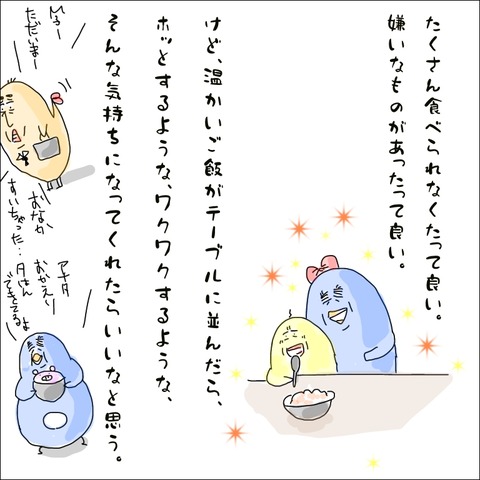 たくさん食べられなくたって良い。
嫌いなものがあったって良い。
けど、温かいご飯がテーブルに並んだら、
ホッとするような、ワクワクするような、
そんな気持ちになってくれたらいいなと思う。
ただいまー
おなか
すいちゃった…
アナタ
おかえり
夕はん
できてるよ